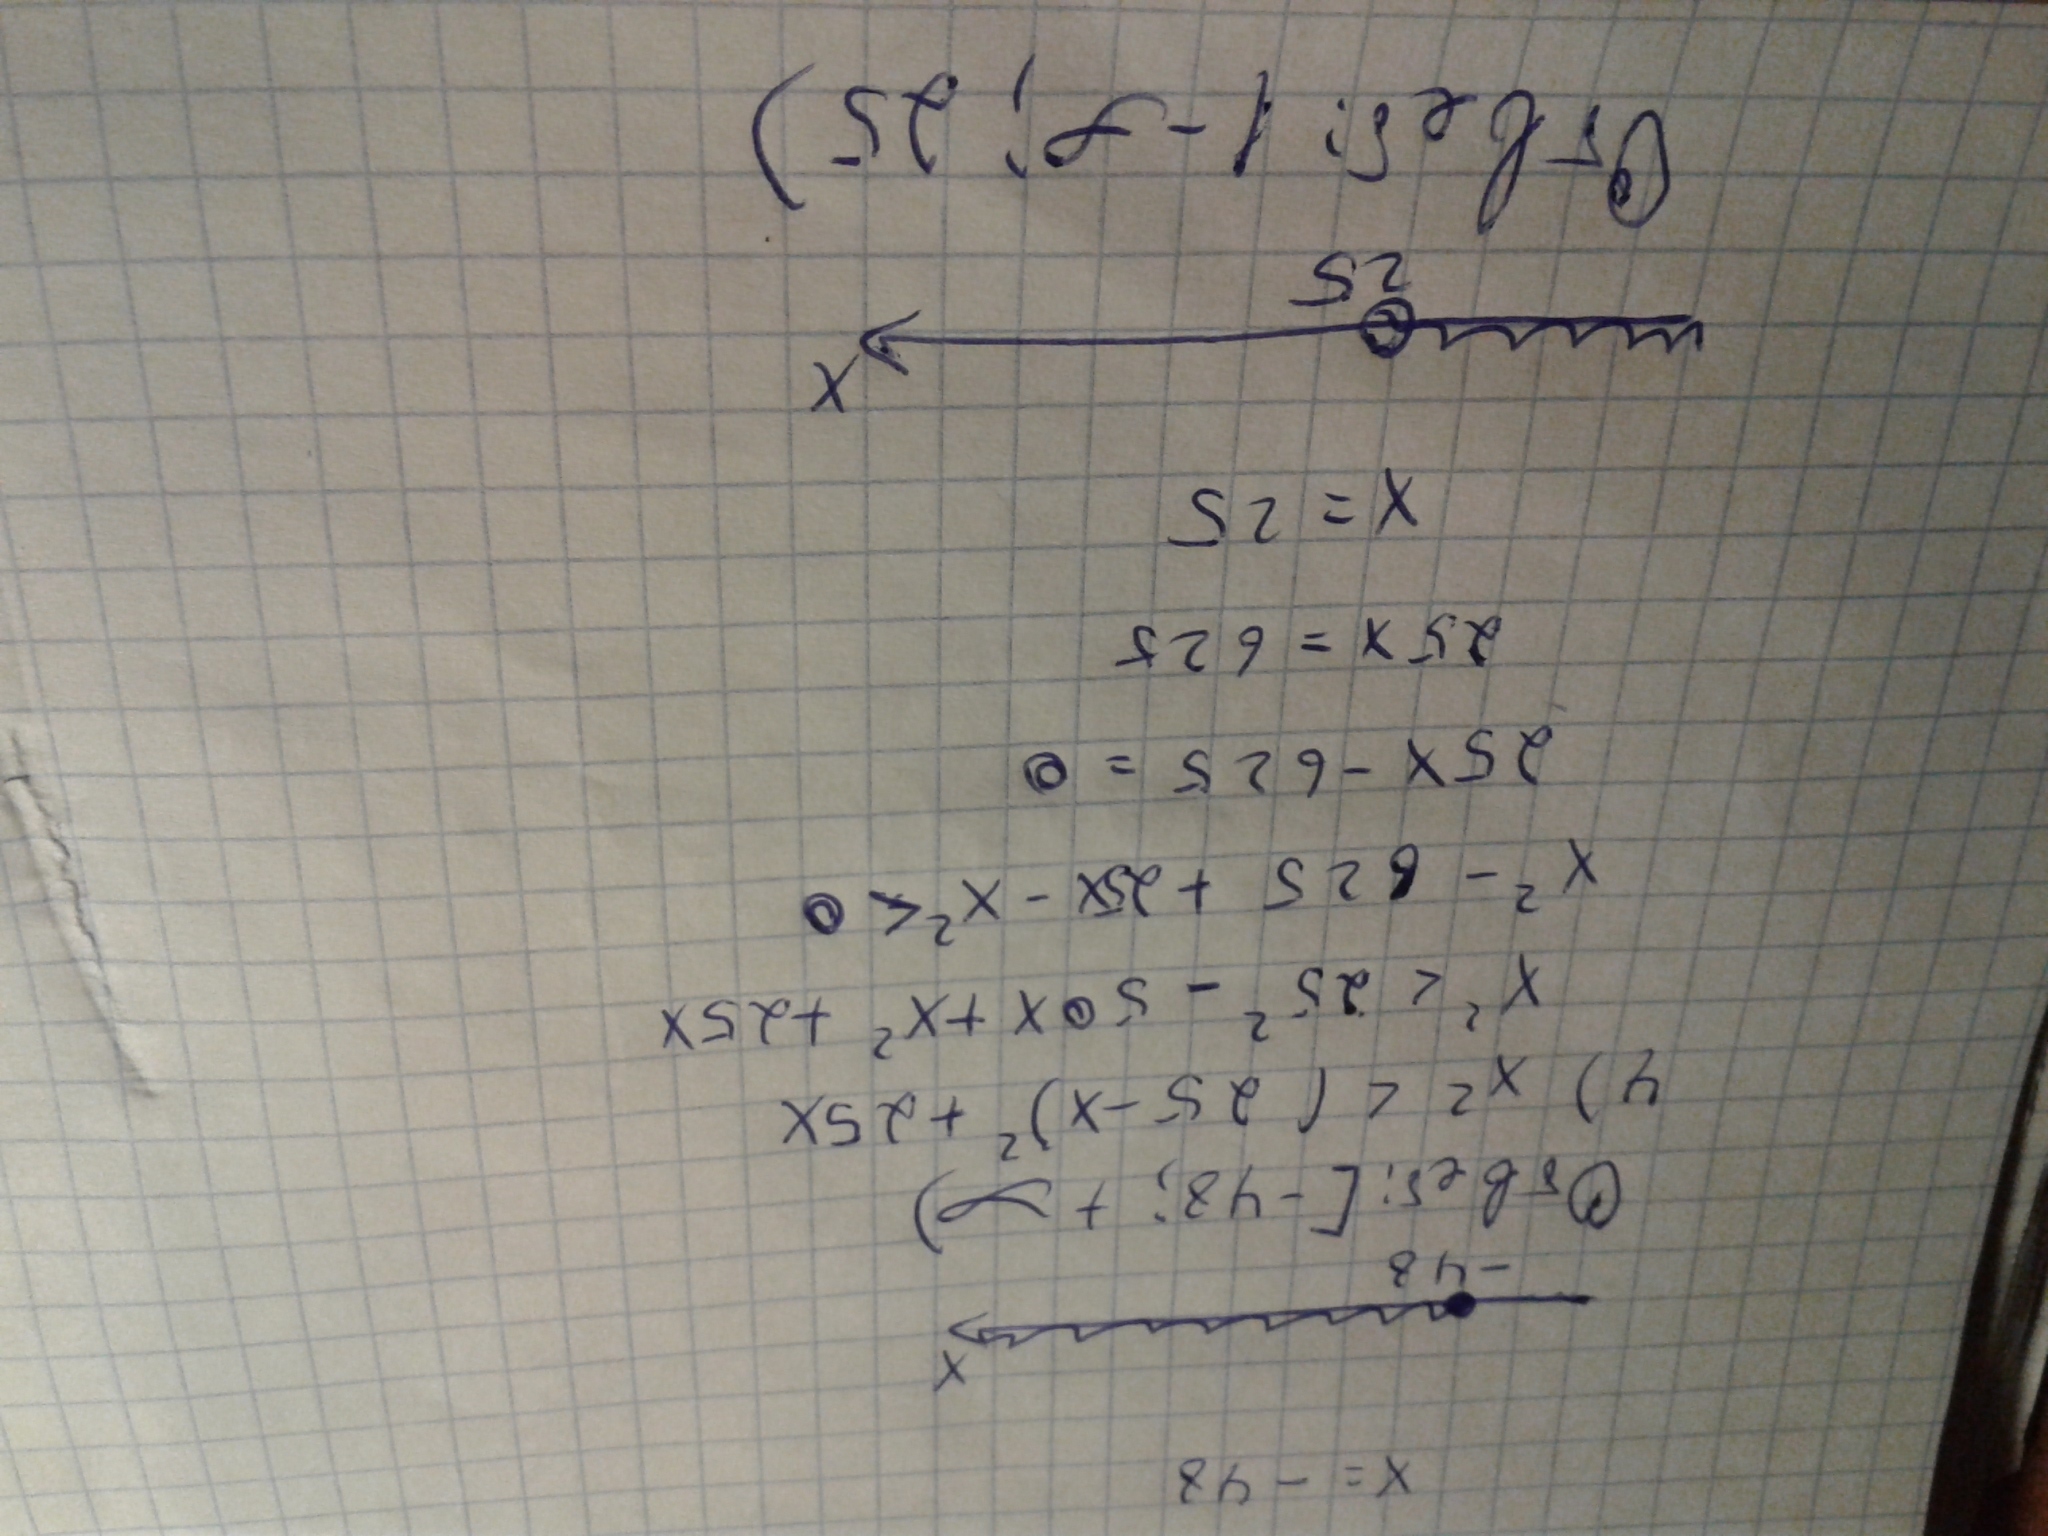 x = -48
x
-48
Ответ: [-48; +∞)
4) x² < (25-x)² +25x
x² < 25² - 50x +x² +25x
x² - 625 +25x - x² < 0
25x -625 = 0
25x = 625
x = 25
x
25
Ответ: (-∞; 25)